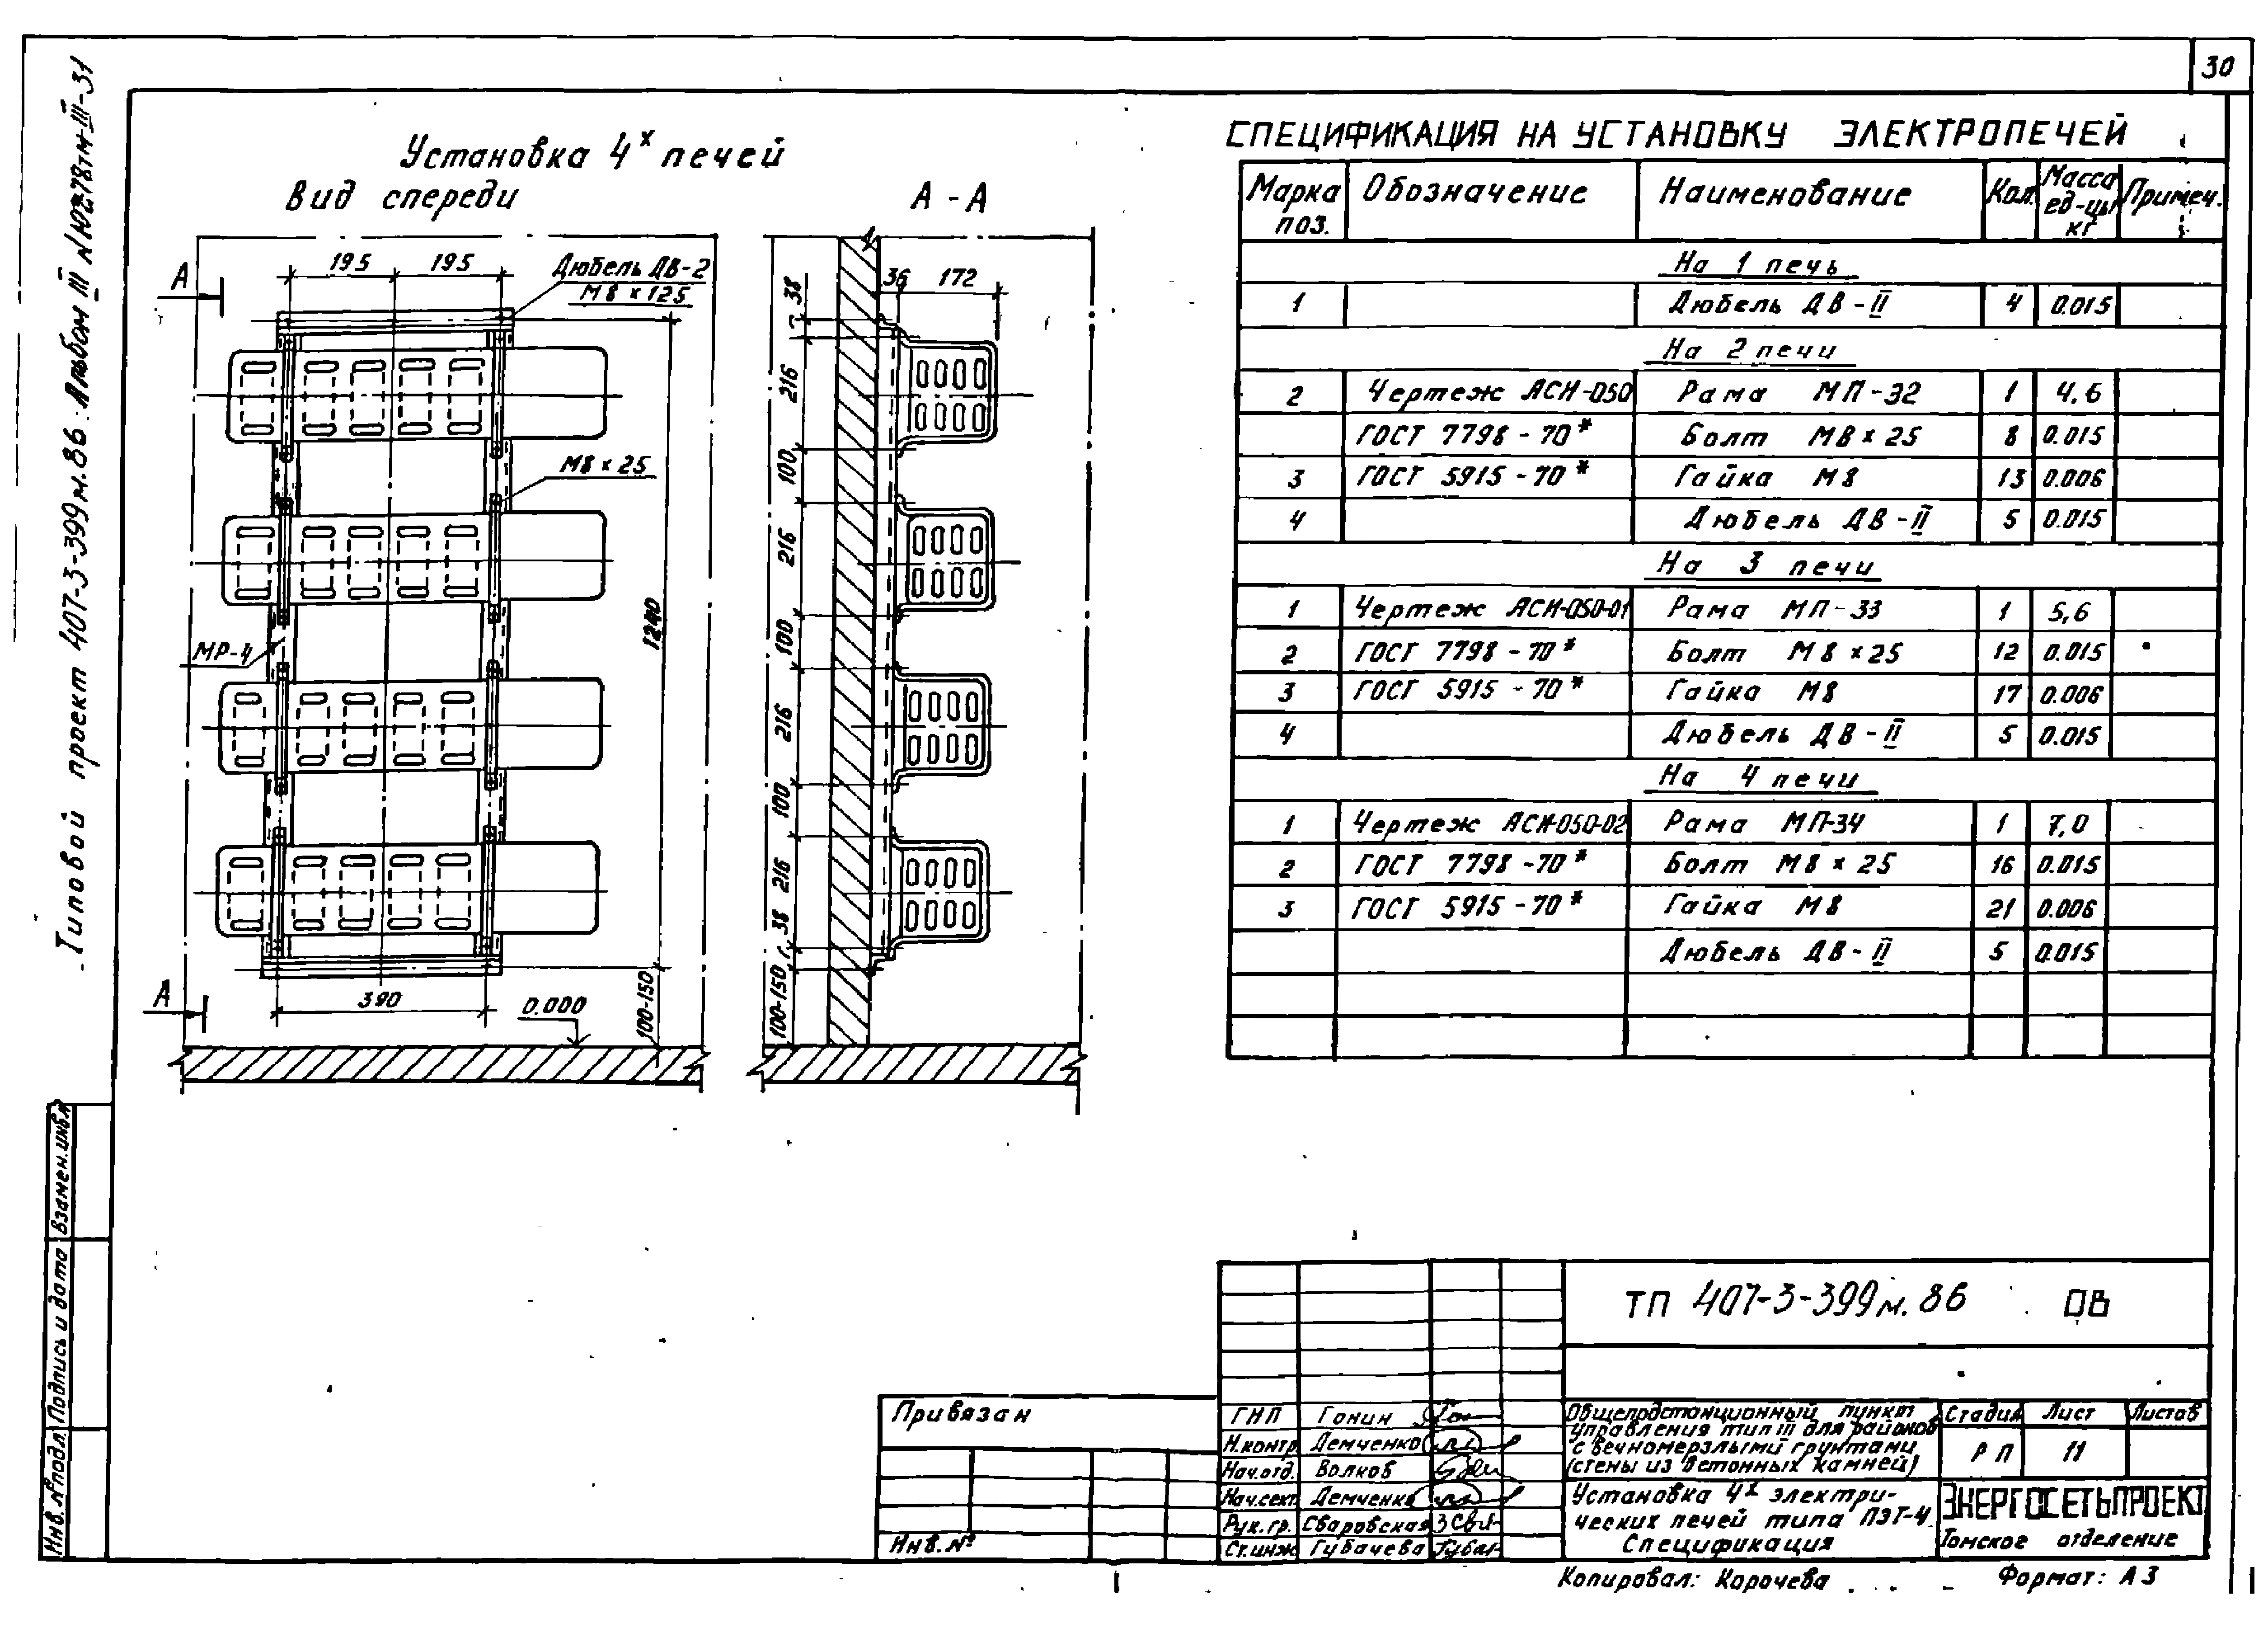 30
Типовой проект 407-3-399м.86. Альбом III N10278тм-III-31
Установка 4х печей
Вид спереди
А - А
А
195
195
Дюбель ДВ-2
М8 х 125
М8 х 25
МР-4
1240
А
390
0.000
100-150
36
172
38
216
100
216
100
216
100
216
38
100-150
СПЕЦИФИКАЦИЯ НА УСТАНОВКУ ЭЛЕКТРОПЕЧЕЙ
Марка поз. Обозначение Наименование Кол. Масса ед-цы кг Примеч.
На 1 печь
1 Дюбель ДВ-II 4 0.015
На 2 печи
2 Чертеж АСИ-050 Рама МП-32 1 4,6
ГОСТ 7798-70* Болт М8 х 25 8 0.015
3 ГОСТ 5915-70* Гайка М8 13 0.006
4 Дюбель ДВ-II 5 0.015
На 3 печи
1 Чертеж АСИ-050-01 Рама МП-33 1 5,6
2 ГОСТ 7798-70* Болт М8 х 25 12 0.015
3 ГОСТ 5915-70* Гайка М8 17 0.006
4 Дюбель ДВ-II 5 0.015
На 4 печи
1 Чертеж АСИ-050-02 Рама МП-34 1 7,0
2 ГОСТ 7798-70* Болт М8 х 25 16 0.015
3 ГОСТ 5915-70* Гайка М8 21 0.006
Дюбель ДВ-II 5 0.015
Взамен.инв.№
Подпись и дата
Инв.№подл.
Привязан
Инв.№
ТП 407-3-399м.86 ОВ
ГНП Гонин
Н.контр Демченко
Нач.отд. Волков
Нач.сект. Демченко
Рук.гр. Сваровская
Ст.инж Губачева
Общеподстанционный пункт
управления тип III для районов
с вечномерзлыми грунтами
(стены из бетонных камней)
Стадия Лист Листов
РП 11
Установка 4х электри-
ческих печей типа ПЭТ-4.
Спецификация
ЭНЕРГОСЕТЬПРОЕКТ
Томское отделение
Копировал: Корочева
Формат: А3